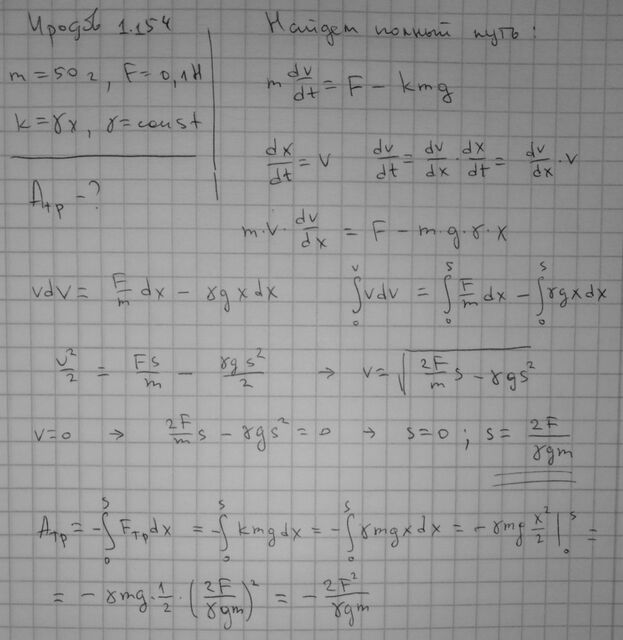 Иродов 1.154
m = 50 г, F = 0,1 Н
k = γx, γ = const
Aтр - ?
Найдем полный путь:
m dv/dt = F - kmg
dx/dt = v    dv/dt = dv/dx · dx/dt = dv/dx · v
m·v·dv/dx = F - m·g·γ·x
vdv = F/m dx - γgxdx    ∫₀ᵛ vdv = ∫₀ˢ F/m dx - ∫₀ˢ γgxdx
v²/2 = Fs/m - γgs²/2 → v = √(2F/m s - γgs²)
v=0 → 2F/m s - γgs² = 0 → s=0 ; s = 2F/γgm
Aтр = -∫₀ˢ Fтр dx = -∫₀ˢ kmgdx = -∫₀ˢ γmgxdx = -γmg x²/2 |₀ˢ =
= -γmg·1/2·(2F/γgm)² = -2F²/γgm